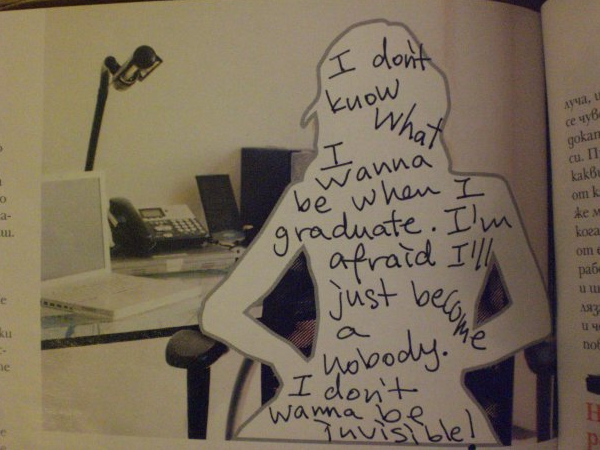 I don't
know
what
I
wanna
be when I
graduate. I'm
afraid I'll
just become
a
nobody.
I don't
wanna be
invisible!
луча, и
се чув
докат
си. П
какв
от к
же м
кога
от е
рабо
и ш
ляз
и че
пов
Н
р